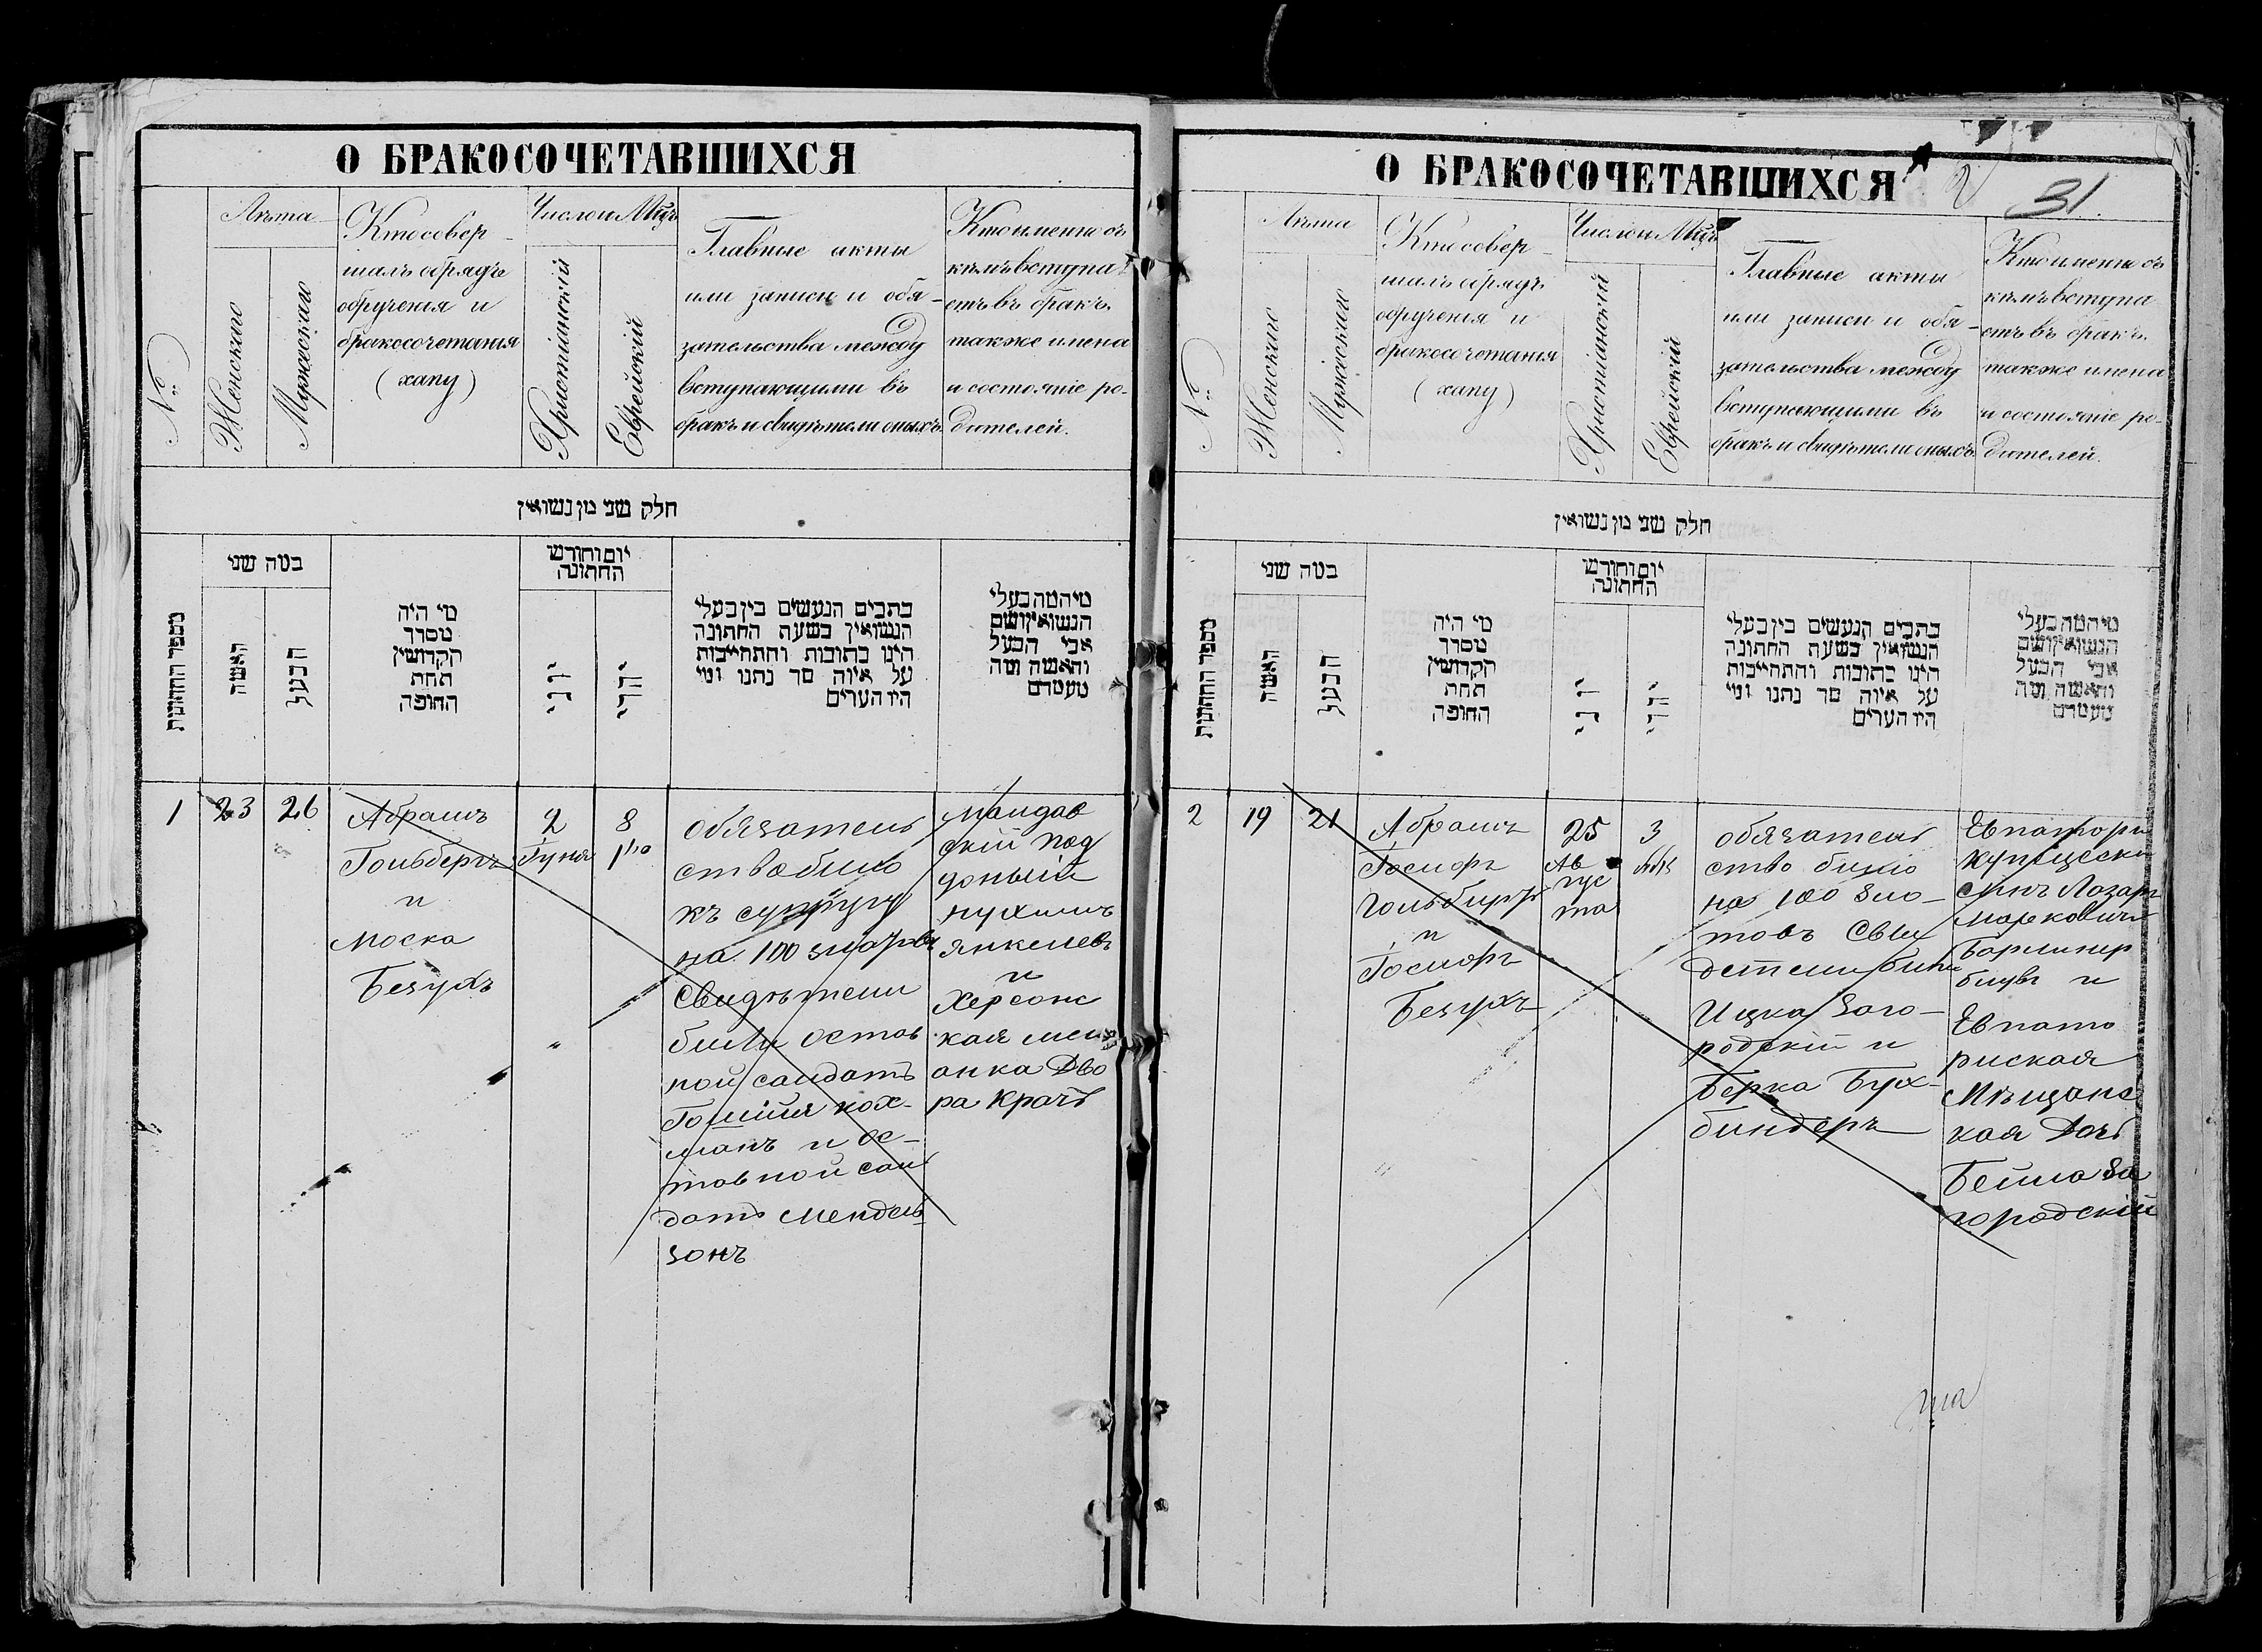 О БРАКОСОЧЕТАВШИХСЯ
№
Лѣта
Женскаго
Мужескаго
Кто совер-
шалъ обрядъ
обрученія и
бракосочетанія
(хапу)
Число и Мѣсц
Христіанскій
Еврейскій
Главные акты
или записи и обя-
зательства между
вступающими въ
бракъ и свидѣтели оныхъ
Кто именно съ
кѣмъ вступа
етъ въ бракъ
также имена
и состояніе ро-
дителей.
חלק שני מן נשואין
מספר החתונות
במה שני
האשה
הבעל
מי היה
מסדר
הקדושין
תחת
החופה
יום וחודש
החתונה
יוני
יהדי
כתבים הנעשים בין בעלי
הנשואין בשעת החתונה
היינו כתובות והתחייבות
על איזה סך נתנו ומי
היו העדים
מי המה בעלי
הנשואין ושם
אבי הבעל
והאשה ומה
מעמדם
1
23
26
Абрамъ
Гольбергъ
и
Моска
Безухъ
2
Іуня
8
סיון
обязатель
ство било
къ супругу
на 100 злотовъ
Свидѣтели
били остав
ной солдатъ
манъ и ос-
тавной сол
датъ мендель
зонъ
скій
нухимъ
янкелевъ
и
Херсонс
кая мещ
анка Дво
ра Крачъ
О БРАКОСОЧЕТАВШИХСЯ
31.
№
Лѣта
Женскаго
Мужескаго
Кто совер-
шалъ обрядъ
обрученія и
бракосочетанія
(хапу)
Число и Мѣсц
Христіанскій
Еврейскій
Главные акты
или записи и обя-
зательства между
вступающими въ
бракъ и свидѣтели оныхъ
Кто именно съ
кѣмъ вступа
етъ въ бракъ
также имена
и состояніе ро-
дителей.
חלק שני מן נשואין
מספר החתונות
במה שני
האשה
הבעל
מי היה
מסדר
הקדושין
תחת
החופה
יום וחודש
החתונה
יוני
יהדי
כתבים הנעשים בין בעלי
הנשואין בשעת החתונה
היינו כתובות והתחייבות
על איזה סך נתנו ומי
היו העדים
מי המה בעלי
הנשואין ושם
אבי הבעל
והאשה ומה
מעמדם
2
19
21
Абрамъ
Іосифъ
Гольбиргъ
и
Іосифъ
Безухъ
25
Ав
гус
та
3
אלול
обязатель
ство било
на 100 зло-
товъ Сви
детели били
Ицка Заго-
родскій и
Берка Бух-
биндеръ
Евпатори
купеческі
синъ Лазарь
Марковичъ
и
Евпато
риская
Мѣщанс
кая Дочъ
Бейла За
городскій